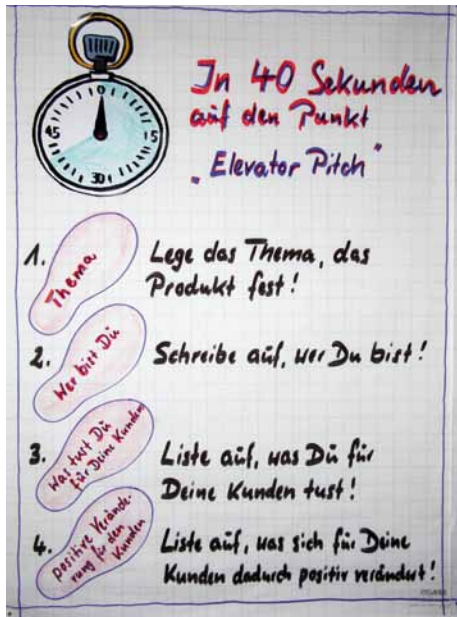 In 40 Sekunden
auf den Punkt
„Elevator Pitch"
10
45
15
30
1.
Thema
Lege das Thema, das
Produkt fest!
2.
Wer bist Du
Schreibe auf, wer Du bist!
3.
Was tust Du
für Deine Kunden
Liste auf, was Du für
Deine Kunden tust!
4.
positive Verände-
rung für den
Kunden
Liste auf, was sich für Deine
Kunden dadurch positiv verändert!